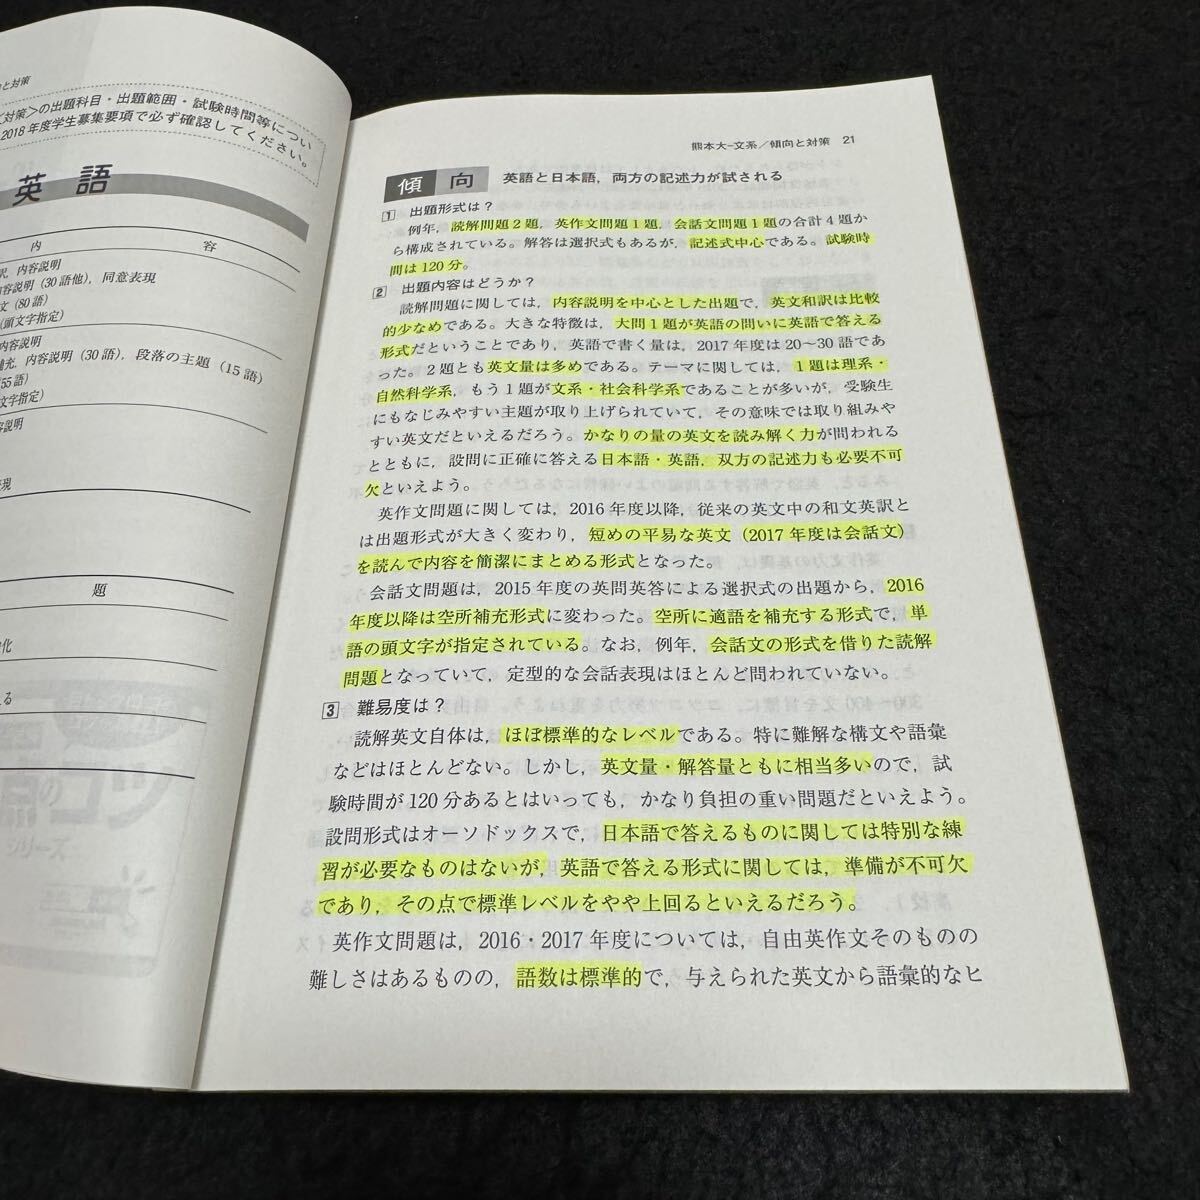 と対策
対策>の出題科目・出題範囲・試験時間等につい
2018年度学生募集要項で必ず確認してください。
英語
内 容
訳，内容説明
内容説明（30語他），同意表現
文（80語）
（頭文字指定）
内容説明
補充，内容説明（30語），段落の主題（15語）
55語）
文字指定）
容説明
現
題
化
る
熊本大-文系／傾向と対策 21
傾向 英語と日本語，両方の記述力が試される
1 出題形式は？
例年，読解問題2題，英作文問題1題，会話文問題1題の合計4題か
ら構成されている。解答は選択式もあるが，記述式中心である。試験時
間は120分。
2 出題内容はどうか？
読解問題に関しては，内容説明を中心とした出題で，英文和訳は比較
的少なめである。大きな特徴は，大問1題が英語の問いに英語で答える
形式だということであり，英語で書く量は，2017年度は20〜30語であ
った。2題とも英文量は多めである。テーマに関しては，1題は理系・
自然科学系，もう1題が文系・社会科学系であることが多いが，受験生
にもなじみやすい主題が取り上げられていて，その意味では取り組みや
すい英文だといえるだろう。かなりの量の英文を読み解く力が問われる
とともに，設問に正確に答える日本語・英語，双方の記述力も必要不可
欠といえよう。
英作文問題に関しては，2016年度以降，従来の英文中の和文英訳と
は出題形式が大きく変わり，短めの平易な英文（2017年度は会話文）
を読んで内容を簡潔にまとめる形式となった。
会話文問題は，2015年度の英問英答による選択式の出題から，2016
年度以降は空所補充形式に変わった。空所に適語を補充する形式で，単
語の頭文字が指定されている。なお，例年，会話文の形式を借りた読解
問題となっていて，定型的な会話表現はほとんど問われていない。
3 難易度は？
読解英文自体は，ほぼ標準的なレベルである。特に難解な構文や語彙
などはほとんどない。しかし，英文量・解答量ともに相当多いので，試
験時間が120分あるとはいっても，かなり負担の重い問題だといえよう。
設問形式はオーソドックスで，日本語で答えるものに関しては特別な練
習が必要なものはないが，英語で答える形式に関しては，準備が不可欠
であり，その点で標準レベルをやや上回るといえるだろう。
英作文問題は，2016・2017年度については，自由英作文そのものの
難しさはあるものの，語数は標準的で，与えられた英文から語彙的なヒ